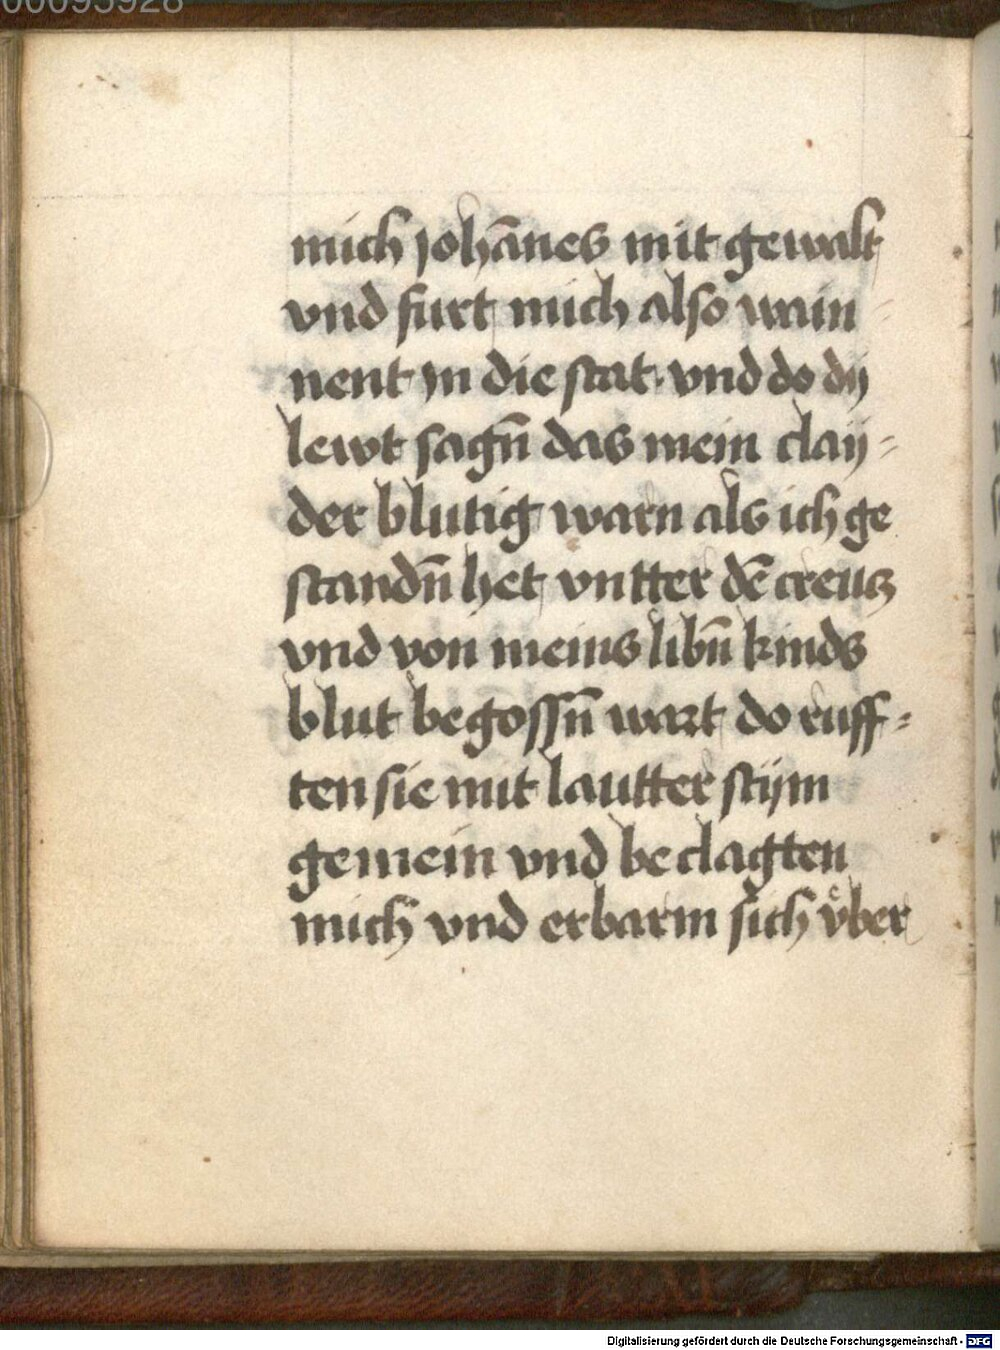 00095928
mich johānes mit gewalt
vnd furt mich also wain
nent in die stat · vnd do dÿ
lewt sagn̄ das mein claÿ-
der blutig warn als ich ge
standn̄ het vntter dē creutz
vnd von meins libn̄ kinds
blut begossn̄ wart do ruff-
ten sie mit lautter stÿm
gemein vnd beclagten
mich vnd erbarm sich vͤber
Digitalisierung gefördert durch die Deutsche Forschungsgemeinschaft - DFG